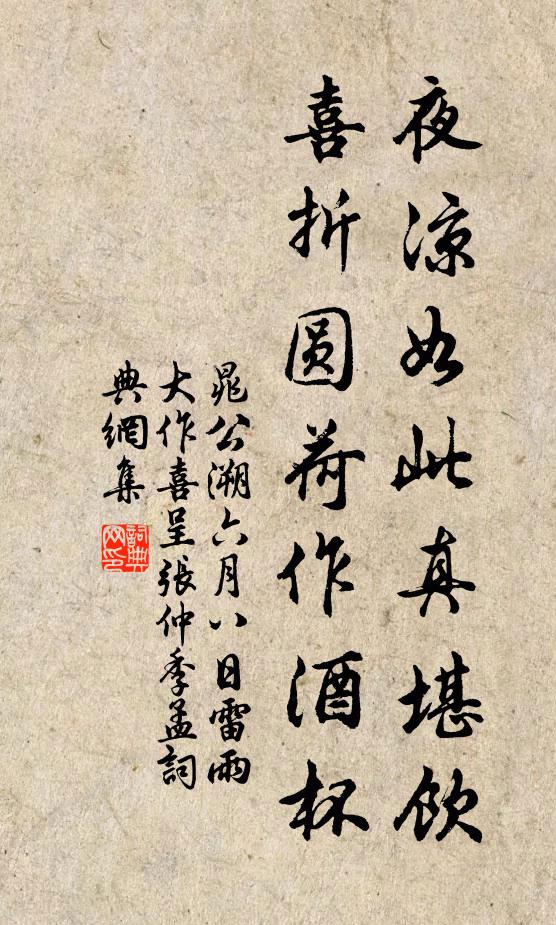 夜涼如此真堪飲
喜折圓荷作酒杯
晁公溯六月八日雷雨
大作喜呈張仲季孟詞
典網集
詞典网印